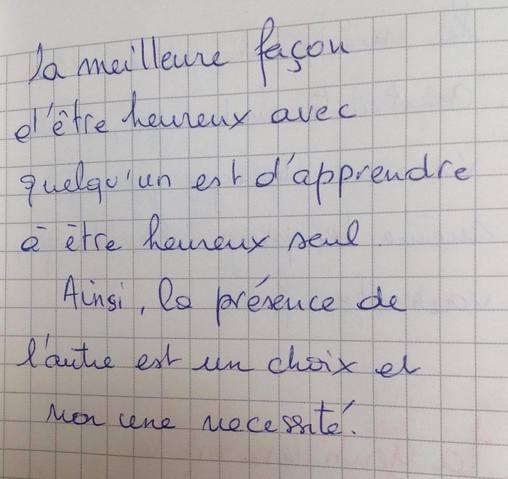 la meilleure façon
d'être heureux avec
quelqu'un est d'apprendre
à être heureux seul.
Ainsi, la présence de
l'autre est un choix et
non une necessité.